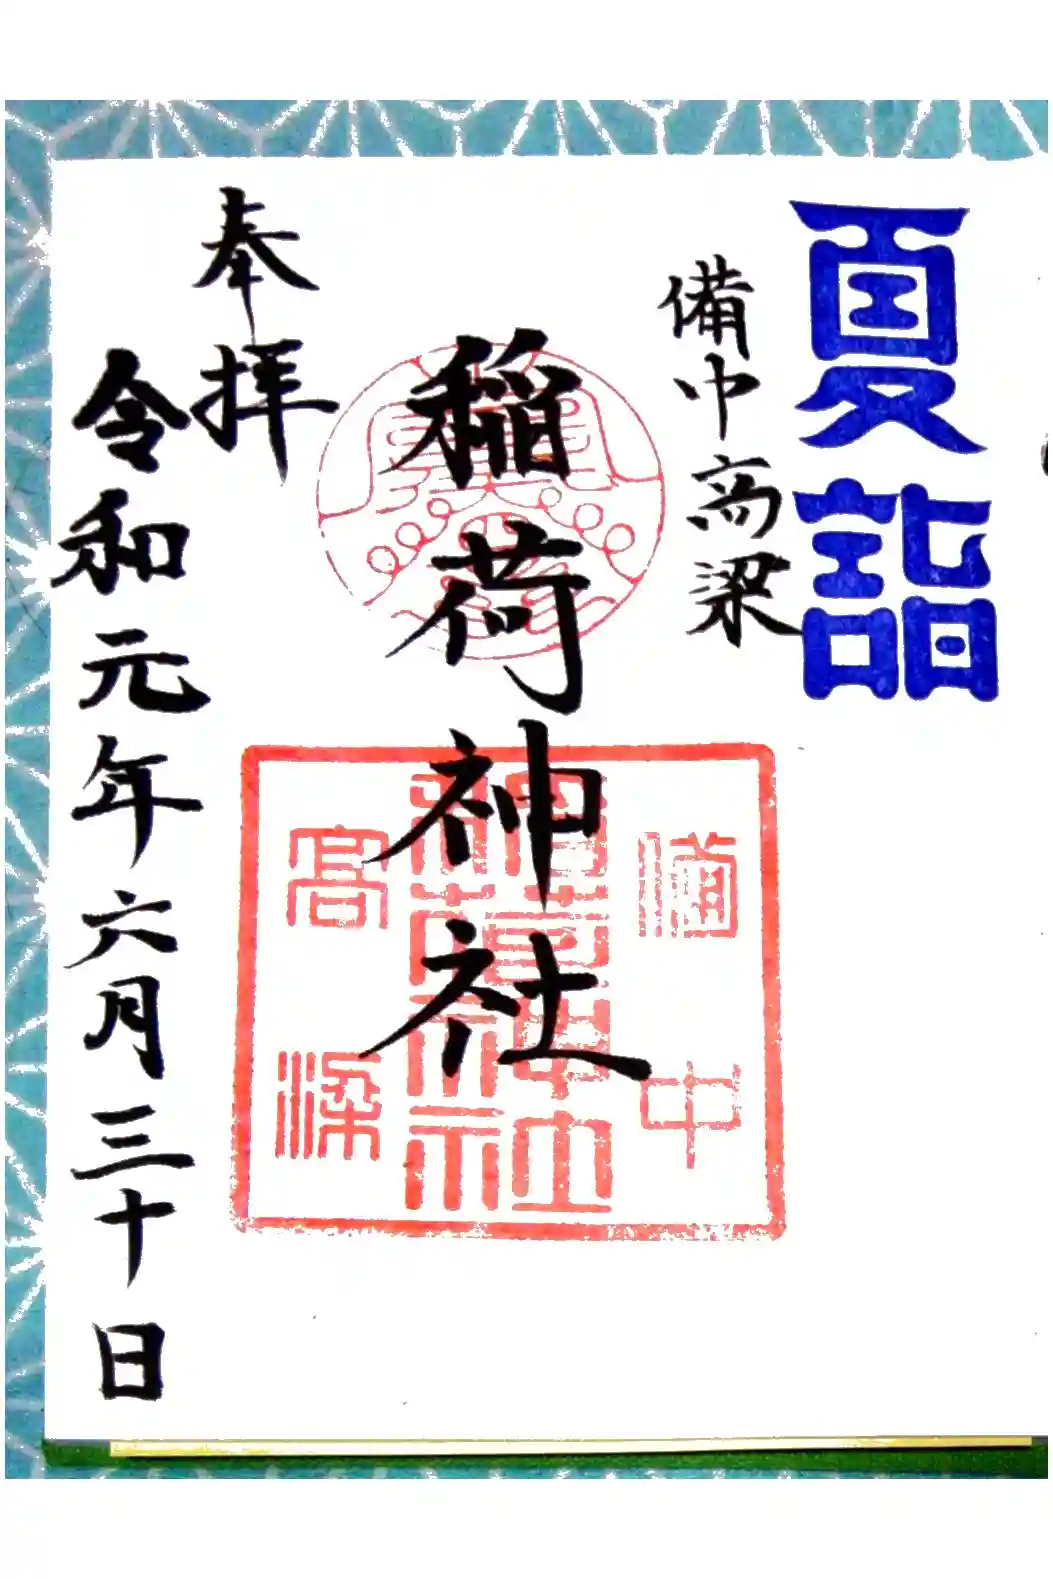 夏詣
備中高梁
稲荷神社
奉拝
令和元年六月三十日
備中
高梁